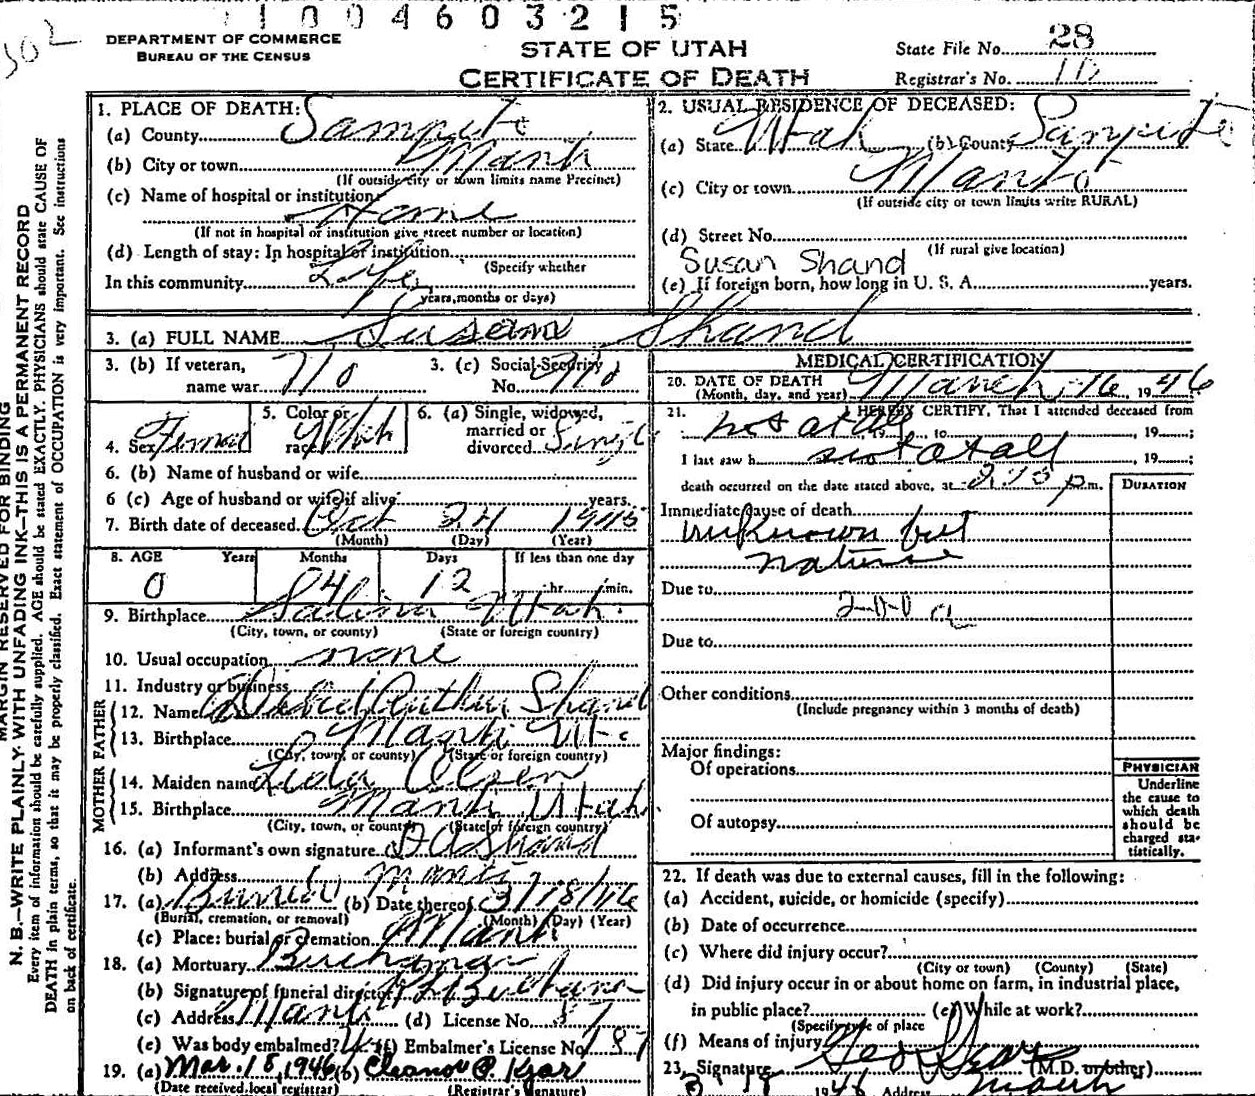 1004603215
302
DEPARTMENT OF COMMERCE
BUREAU OF THE CENSUS
STATE OF UTAH
CERTIFICATE OF DEATH
State File No. 28
Registrar's No. 10
MARGIN RESERVED FOR BINDING
N. B.—WRITE PLAINLY WITH UNFADING INK—THIS IS A PERMANENT RECORD
Every item of information should be carefully supplied. AGE should be stated EXACTLY. PHYSICIANS should state CAUSE OF
DEATH in plain terms, so that it may be properly classified. Exact statement of OCCUPATION is very important. See instructions
on back of certificate.
1. PLACE OF DEATH:
(a) County Sanpete
(b) City or town Manti
(If outside city or town limits name Precinct)
(c) Name of hospital or institution:
Home
(If not in hospital or institution give street number or location)
(d) Length of stay: In hospital or institution
(Specify whether
In this community Life
years, months or days)
2. USUAL RESIDENCE OF DECEASED:
(a) State Utah (b) County Sanpete
(c) City or town Manti
(If outside city or town limits write RURAL)
(d) Street No.
(If rural give location)
Susan Shand
(e) If foreign born, how long in U. S. A. years.
3. (a) FULL NAME Susan Shand
3. (b) If veteran, name war No
3. (c) Social Security No. No
4. Sex Femal
5. Color or race
6. (a) Single, widowed, married or divorced Single
6. (b) Name of husband or wife
6 (c) Age of husband or wife if alive years.
7. Birth date of deceased Oct 24 1945
(Month) (Day) (Year)
8. AGE Years Months Days If less than one day
0 04 12 hr. min.
9. Birthplace Salina Utah
(City, town, or county) (State or foreign country)
10. Usual occupation none
11. Industry or business
FATHER
12. Name David Arthur Shand
13. Birthplace Manti Ut
(City, town, or county) (State or foreign country)
MOTHER
14. Maiden name Leda Olsen
15. Birthplace Manti Utah
(City, town, or county) (State or foreign country)
16. (a) Informant's own signature D A Shand
(b) Address Manti
17. (a) Burial (b) Date thereof 3/18/46
(Burial, cremation, or removal) (Month) (Day) (Year)
(c) Place: burial or cremation Manti
18. (a) Mortuary Buchanan
(b) Signature of funeral director Buchanan
(c) Address Manti (d) License No. 87
(e) Was body embalmed? (f) Embalmer's License No. 187
19. (a) Mar. 18, 1946 (b) Eleanor P. Kjar
(Date received local registrar) (Registrar's signature)
MEDICAL CERTIFICATION
20. DATE OF DEATH
(Month, day, and year) March 16, 1946
21. I HEREBY CERTIFY, That I attended deceased from
not at all, 19 to , 19 ;
I last saw h not at all, 19 ;
death occurred on the date stated above, at 2:15 p m.
DURATION
Immediate cause of death
unknown but
nature
Due to
200a
Due to
Other conditions
(Include pregnancy within 3 months of death)
Major findings:
Of operations
Of autopsy
PHYSICIAN
Underline
the cause to
which death
should be
charged sta-
tistically.
22. If death was due to external causes, fill in the following:
(a) Accident, suicide, or homicide (specify)
(b) Date of occurrence
(c) Where did injury occur?
(City or town) (County) (State)
(d) Did injury occur in or about home on farm, in industrial place,
in public place? (e) While at work?
(Specify type of place
(f) Means of injury
23. Signature Geo (M.D. or other)
3 18 1946 Address Manti